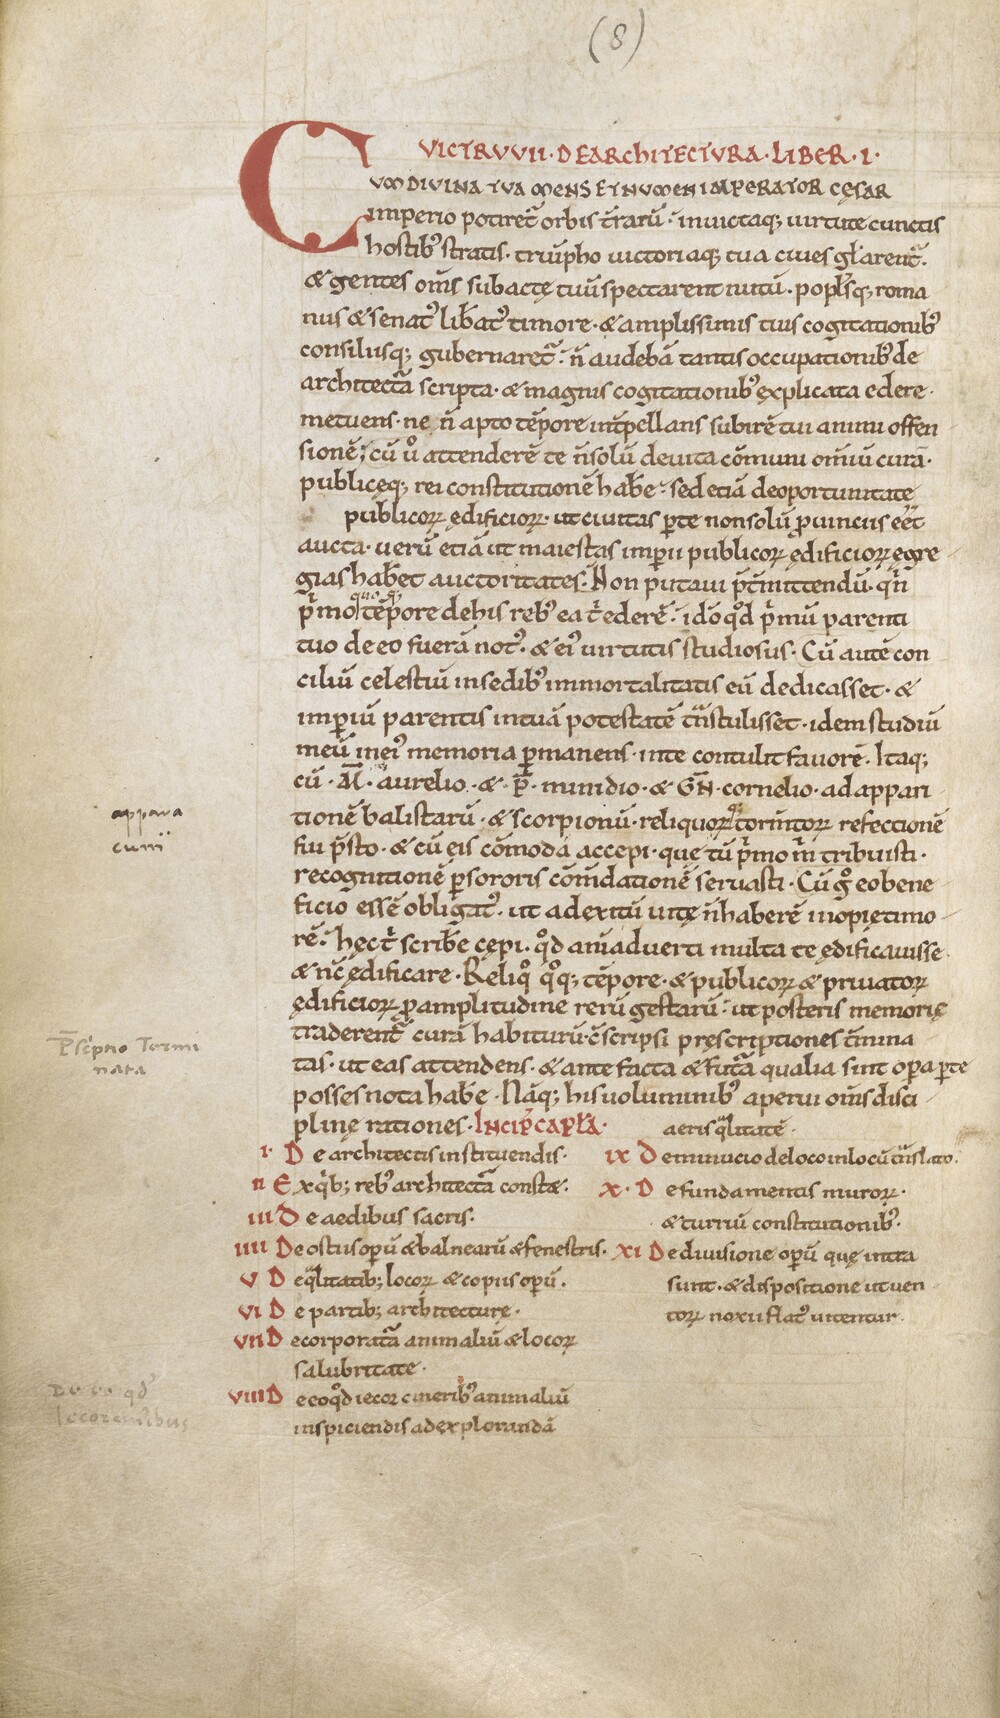 (8)
VICTRUVII · DE ARCHITECTURA · LIBER · I ·
CUM DIVINA TUA MENS ET NUMEN IMPERATOR CĘSAR
imperio potiret᷑ orbis t̄rarū · inuictaq; uirtute cunctis
hostib᷒ stratis · triūpho uictoriaq; tua ciues gl̄arent᷑ ·
& gentes om̄s subactę tuū spectarent nutū · popl̄sq; roma
nus & senat᷒ lib̄at᷒ timore · & amplissimis tuis cogitationib᷒
consiliisq; gubernaret᷑ · n̄ audebā tantis occupationib᷒ de
architect̄a scripta · & magnis cogitationib᷒ explicata edere ·
metuens · ne n̄ apto tēpore int̄pellans subirē tui animi offen
sionē; cū ů attenderē te n̄ solū de uita cōmuni om̄iū curā ·
publicęq; rei constitutionē hab̄e · sed etiā de oportunitate
publicoꝝ ędificioꝝ · ut ciuitas p̱ te non solū ꝓuinciis eēt
aucta · uerū etiā ut maiestas imꝑii publicoꝝ ędificioꝝ egre
gias hab̄et auctoritates. Non putaui p̄t̄mittendū · qn̄
p̄mo quoq; tēpore de his reb᷒ ea t̄ ederē · idō qd̄ p̄mū parenti
tuo de eo fuerā not᷒ · & ei᷒ uirtutis studiosus · Cū autē con
ciliū celestiū in sedib᷒ immortalitatis eū dedicasset · &
imꝑiū parentis in tuā potestatē t̄nstulisset · idem studiū
meū in ei᷒ memoria ꝑmanens · in te contulit fauorē · Itaq;
cū · M̄ · aurelio · & · P̄ · minidio · & GN̄ · cornelio · ad appari
tionē balistarū · & scorpionū · reliquoꝝq; torm̄toꝝ refectionē
fui p̄sto · & cū eis cōmoda accepi · que tū p̄mo m̄ tribuisti ·
recognitionē ꝑ sororis cōm̄dationē seruasti · Cū g̊ eo bene
ficio essē obligat᷒ · ut ad exitū uitę n̄ haberē inopię timo
rē · hęc t̄ scrib̄e cępi · qd̄ aīaduerti multa te ędificauisse
& nc̄ ędificare · Reliq̊ q̊q; tēpore · & publicoꝝ & priuatoꝝ
ędificioꝝ ꝓ amplitudine rerū gestarū · ut posteris memorię
traderent᷑ curā habiturū · c̄scripsi pręscriptiones t̄mina
tas · ut eas attendens · & ante facta & fut̄a qualia sint oꝑa ꝑ te
posses nota hab̄e · Nāq; his uoluminib᷒ aperui om̄s disci
plinę rationes · INCIP̄ CAPL̄A ·
I · De architectis instituendis ·
II Ex qb̄; reb᷒ architect̄a const& ·
III De aedibus sacris ·
IIII De ostiis oꝑū & balnearū & fenestris ·
V De qlitatib; locoꝝ & copiis oꝑū ·
VI De partib; architecturę ·
VII De corporat̄a animaliū & locoꝝ
salubritate ·
VIII De eo qd̄ iecoꝝ cinerib᷒ animaliū
inspiciendis ad explorandā
aeris qlitatē ·
IX De minucio de loco in locū t̄nslato ·
X · De fundamentis muroꝝ ·
& turriū constitutionib᷒ ·
XI De diuisione oꝑū quę intra
sunt · & dispositione ut uen
toꝝ noxii flat᷒ uitentur ·
appara
P̄sc̄ptio Termi
nata
De eo qd̄